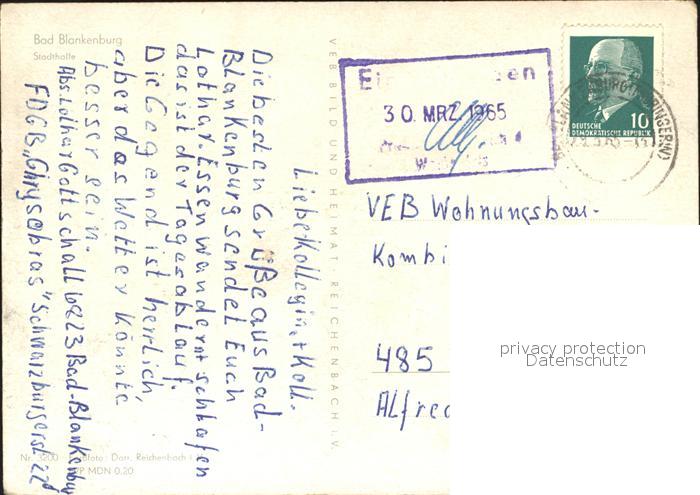 Bad Blankenburg
Stadthalle
Liebe Kollegin + Koll.
Die besten Grüße aus Bad-
Blankenburg sendet Euch
Lothar. Essen wandern + schlafen
das ist der Tagesablauf.
Die Gegend ist herrlich,
aber das Wetter könnte
besser sein.
Abs Lothar Gottschall 6823 Bad-Blankenburg
FDGB „Chrysopras" Schwarzburgerst 22
Nr. 3200 Dorr, Reichenbach
MDN 0.20
VEB BILD UND HEIMAT · REICHENBACH I. V.
30. MRZ. 1965
DEUTSCHE
DEMOKRATISCHE REPUBLIK
10
VEB Wohnungsbau-
Kombi
485
Alfred
privacy protection
Datenschutz